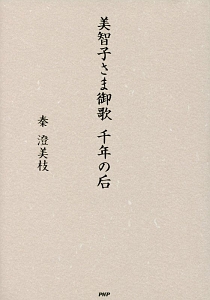 美智子さま御歌 千年の后
秦 澄美枝
PHP